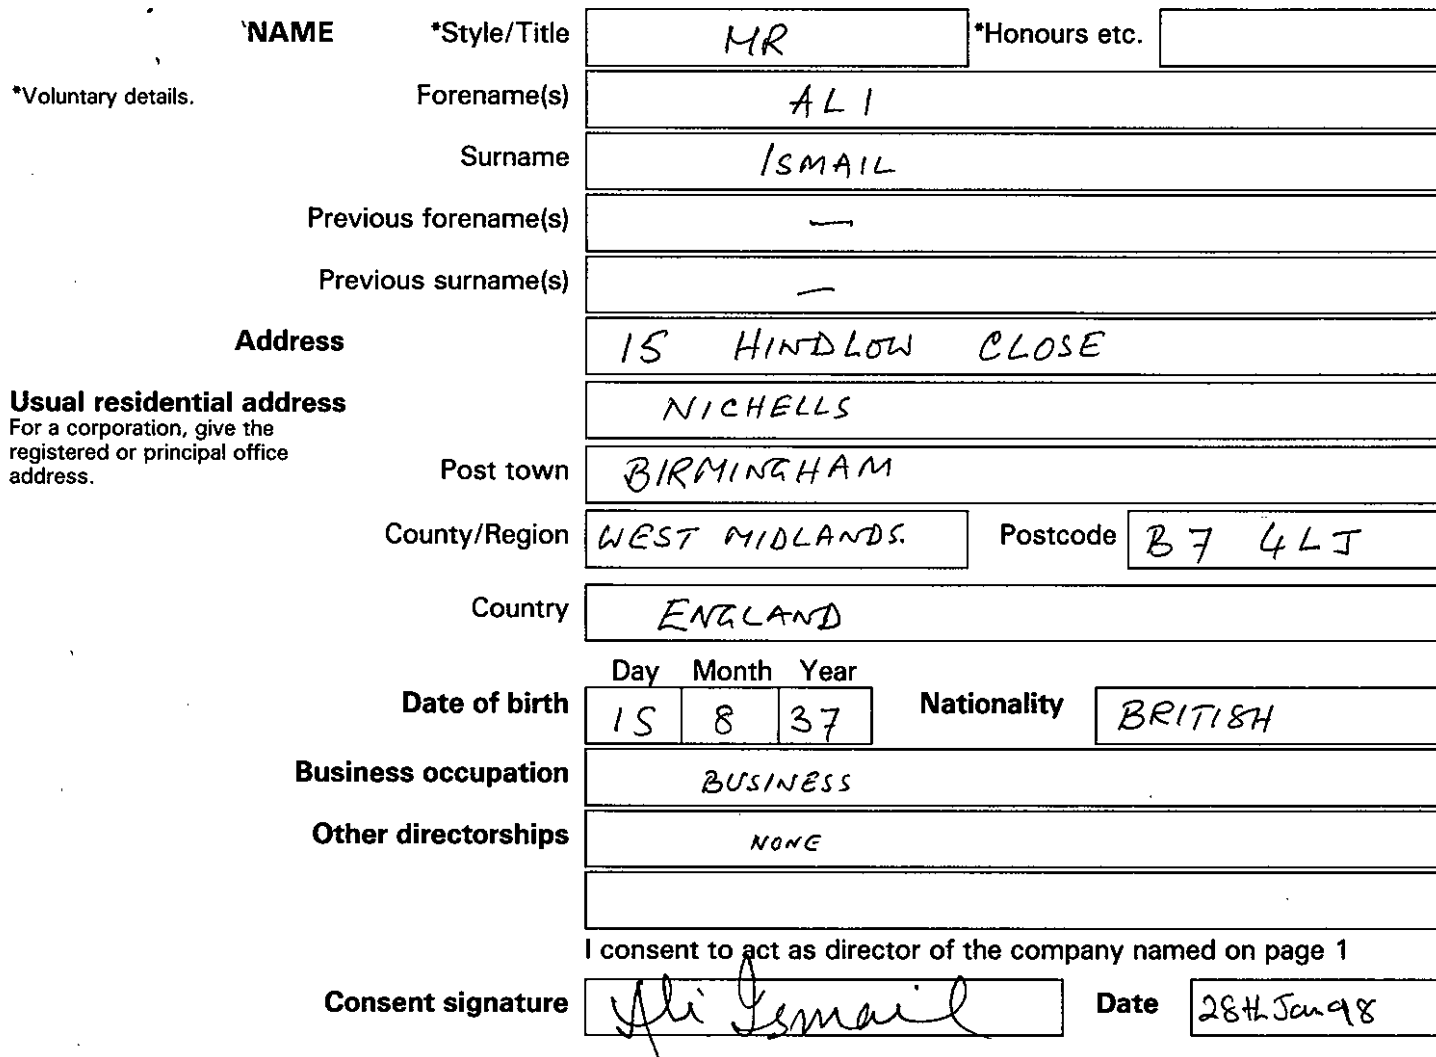 *NAME *Style/Title MR *Honours etc.
*Voluntary details. Forename(s) ALI
Surname ISMAIL
Previous forename(s) —
Previous surname(s) —
Address 15 HINDLOW CLOSE
Usual residential address NICHELLS
For a corporation, give the
registered or principal office
address.
Post town BIRMINGHAM
County/Region WEST MIDLANDS. Postcode B7 4LJ
Country ENGLAND
Day Month Year
Date of birth 15 8 37 Nationality BRITISH
Business occupation BUSINESS
Other directorships NONE
I consent to act as director of the company named on page 1
Consent signature Ali Ismail Date 28th Jan 98